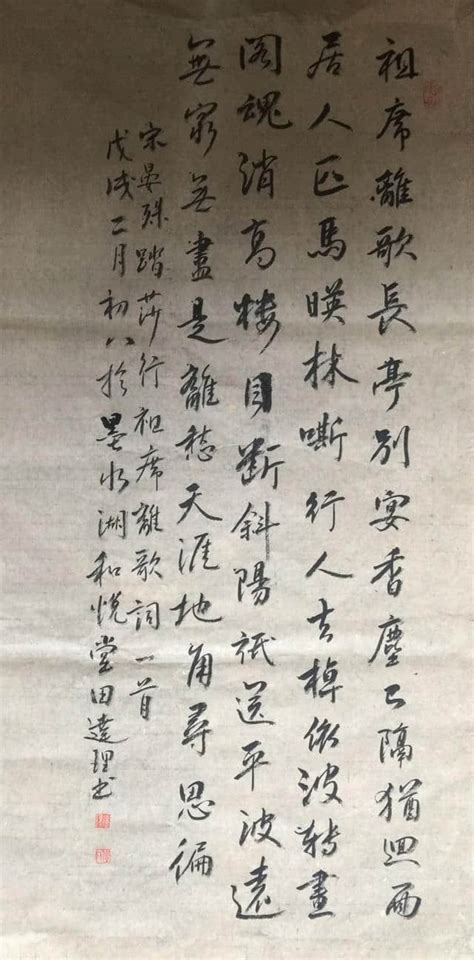 祖席離歌長亭別宴香塵已隔猶迴面
居人匹馬暎林嘶行人去棹依波轉畫
閣魂消高樓目斷斜陽祇送平波遠
無窮無盡是離愁天涯地角尋思徧
宋晏殊踏莎行祖席離歌詞一首
戊戌二月初八於墨水湖和悅堂田達理书